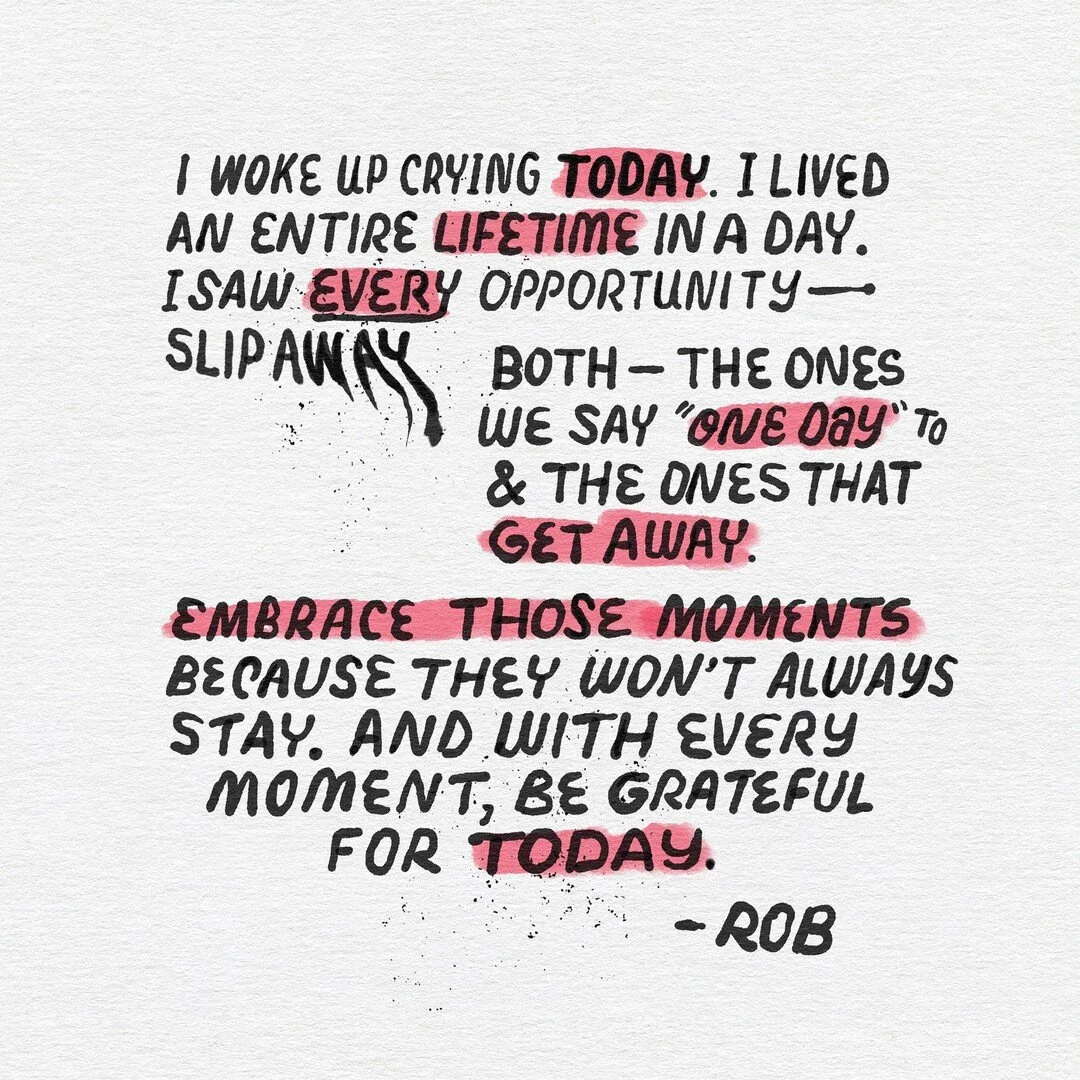 I WOKE UP CRYING TODAY. I LIVED
AN ENTIRE LIFETIME IN A DAY.
I SAW EVERY OPPORTUNITY—
SLIP AWAY
BOTH — THE ONES
WE SAY "ONE DAY" TO
& THE ONES THAT
GET AWAY.
EMBRACE THOSE MOMENTS
BECAUSE THEY WON'T ALWAYS
STAY. AND WITH EVERY
MOMENT, BE GRATEFUL
FOR TODAY.
- ROB